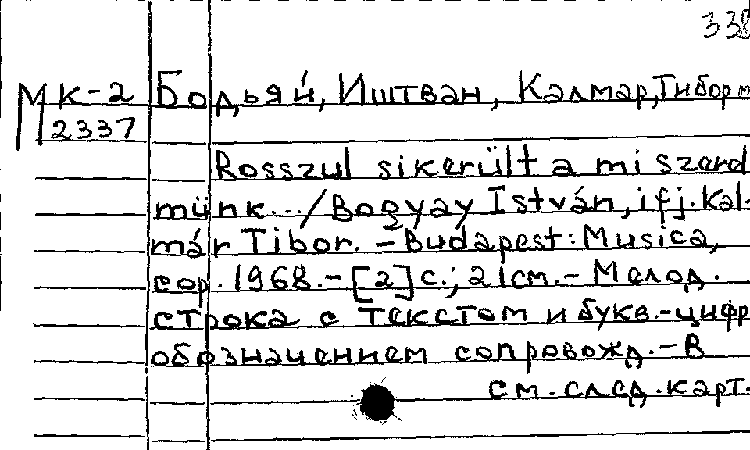 338
МК-2 Бодьяй, Иштван, Калмар, Тибор м
2337
Rosszul sikerült a mi szerel
münk.../Bogyay István, ifj. Kal-
már Tibor. – Budapest: Musica,
cop. 1968. – [2] с.; 21см. – Мелод.
строка с текстом и букв.-цифр
обозначением сопровожд. – В
см. след. карт.